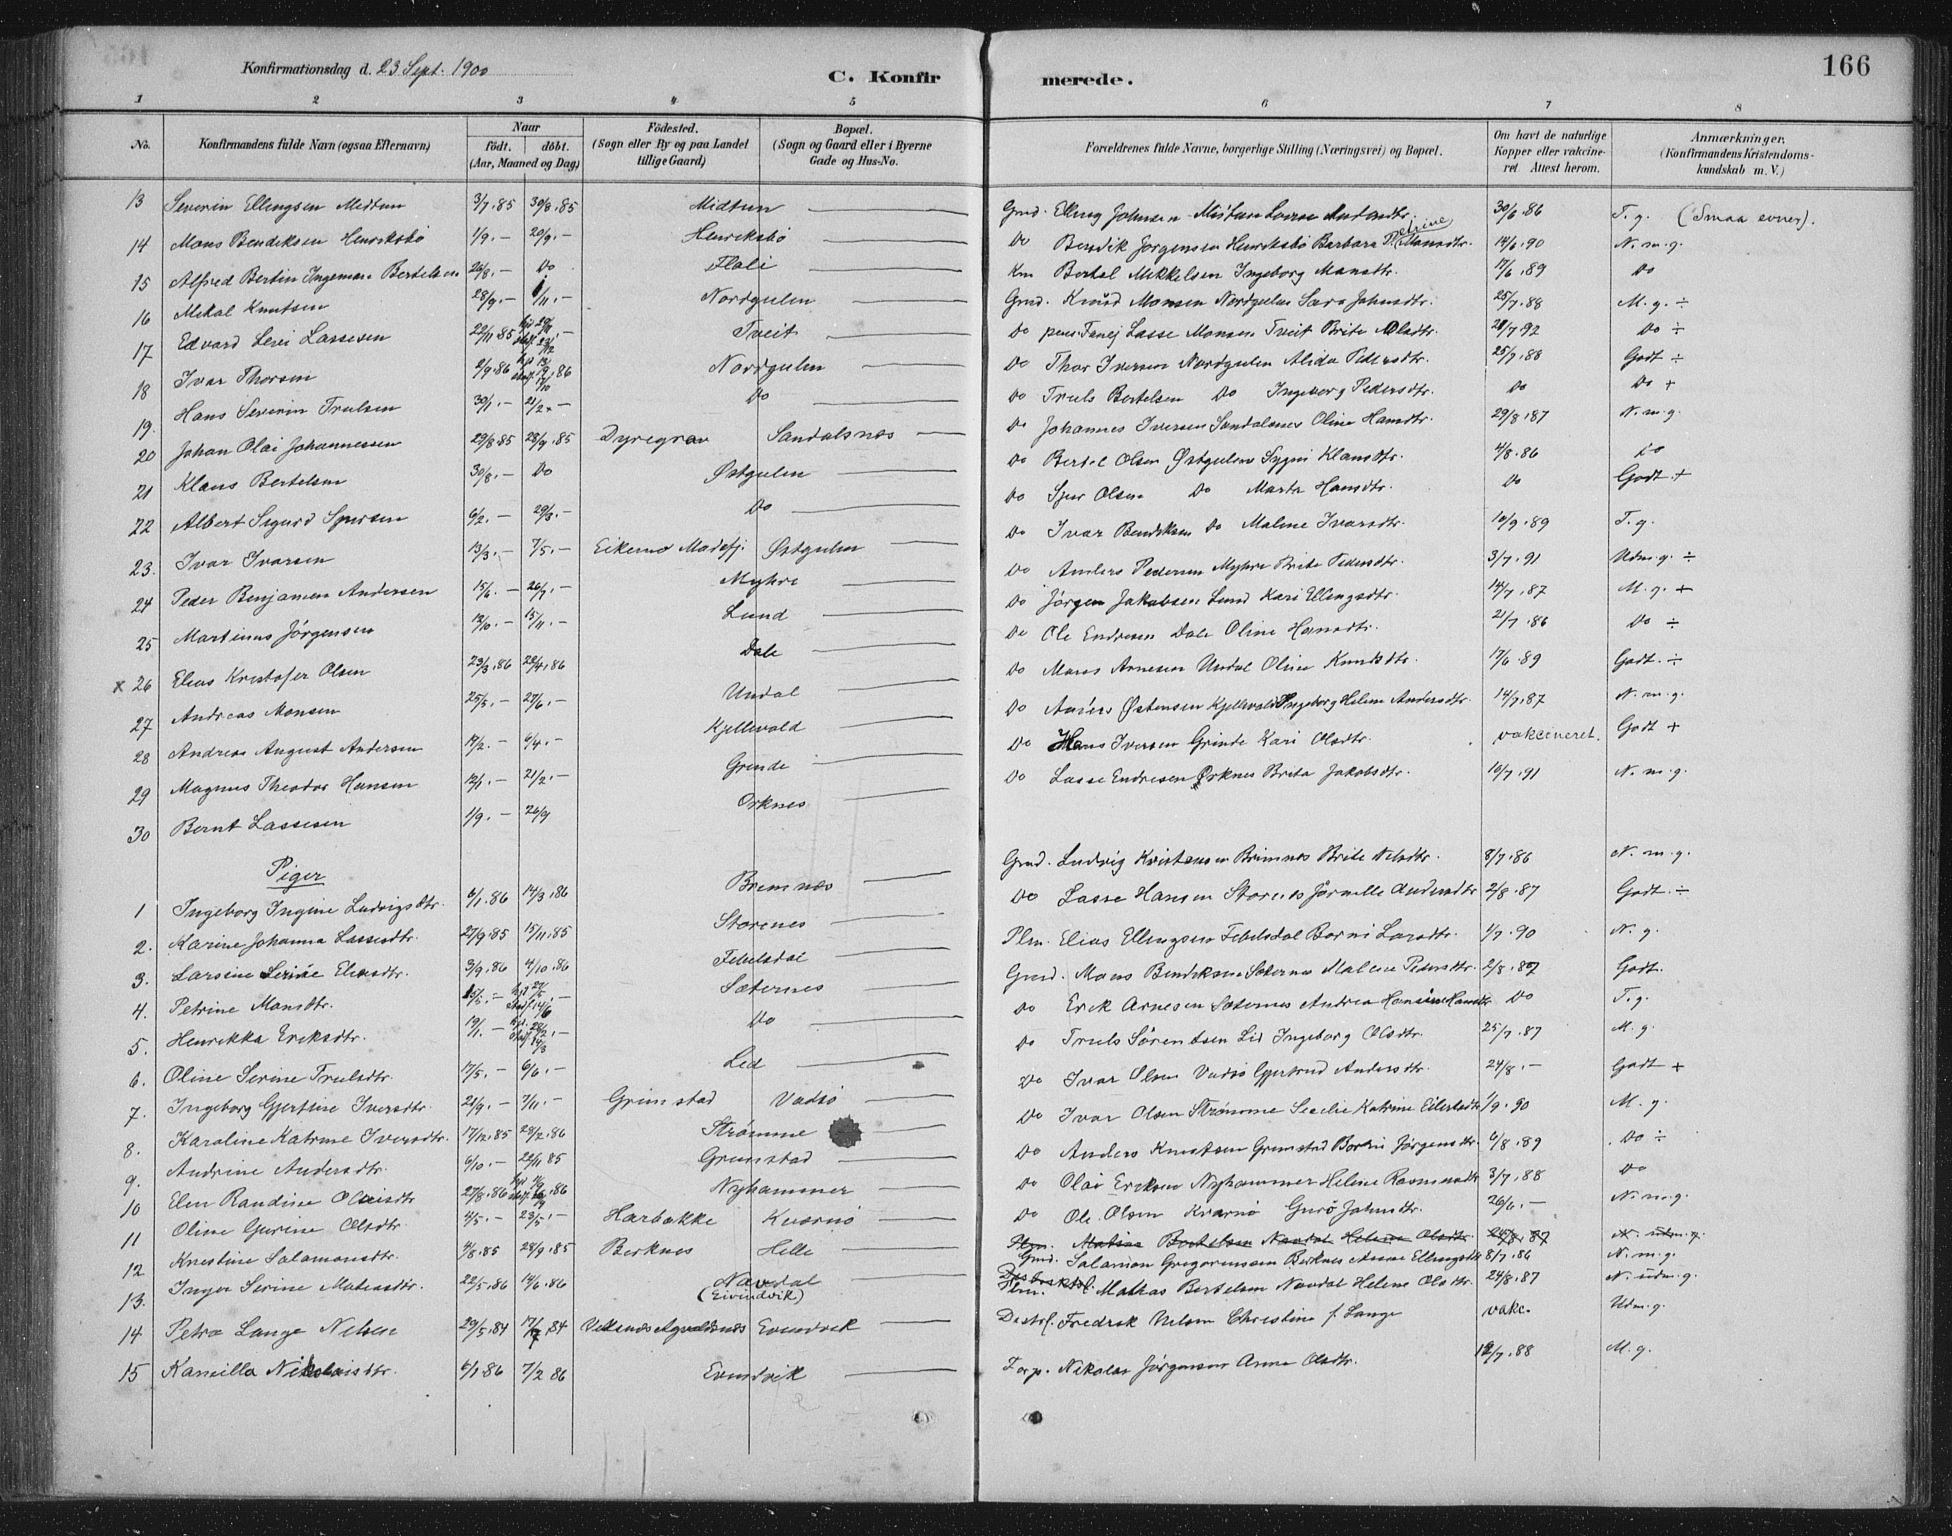 166
Konfirmationsdag d. 23 Sept. 1900
C. Konfirmerede.
1 2 3 4 5 6 7 8
No. Konfirmandens fulde Navn (ogsaa Efternavn) Naar født. døbt. (Aar, Maaned og Dag) Fødested. (Sogn eller By og paa Landet tillige Gaard) Bopæl. (Sogn og Gaard eller i Byerne Gade og Hus-No. Forældrenes fulde Navne, borgerlige Stilling (Næringsvei) og Bopæl. Om havt de naturlige Kopper eller vakcineret Attest herom. Anmærkninger. (Konfirmandens Kristendomskundskab m. V.)
13 Severin Ellingsen Midtun 3/7.85 30/8.85 Midtun Grnd. Elling Johnsen Midtun 30/6.86 T. g. (Smaa evner).
14 Mons Bendiksen Henriksbø 1/9.— 20/9.— Henriksbø Do Bendik Jørgensen Henriksbø Barbara Petrine Monsdtr. 14/6.90 N. m. g.
15 Alfred Bertin Ingeman Bertelsen 26/8.— Do Floli Km Bertel Mikkelsen Ingeborg Monsdtr. 17/6.89 Do
16 Mikal Knutsen 28/9.— 1/11.— Nordgulen Grnd. Knud Monsen Nordgulen Sara Johnsdtr. 25/7.88 M. g. ÷
17 Edvard Levi Lassesen 22/11 85 Tveit Do Lasse Monsen Tveit Brite Olsdtr. 28/7 92 Do ÷
18 Ivar Thorsen 2/9.86 Nordgulen Do Thor Iversen Nordgulen Alida Pedersdtr. 25/7.88 Godt ÷
19. Hans Severin Trulsen 30/1.— 21/2.— Do Do Truls Bertelsen Do Ingeborg Pedersdtr. Do Do +
20 Johan Olai Johannessen 29/8 85 28/9.85 Dyregrov Sandalsnæs Do Johannes Iversen Sandalsnes Oline Hansdtr. 29/8.87 N. m. g.
21 Klaus Bertelsen 30/8.— Do Østgulen Do Bertel Olsen Østgulen Klausdtr. 4/8.86 Do
22 Albert Sigurd Sjursen 6/2.— 29/3.— Do Do Sjur Olsen Do Marta Hansdtr. Do Godt +
23. Ivar Ivarsen 13/3.— 7/5.— Eikemo Østgulen Do Ivar Bendiksen Do Malene Ivarsdtr. 10/9.89 T. g.
24 Peder Benjamin Andersen 15/6.— 26/7.— Myhre Do Anders Pedersen Myhre Brite Pedersdtr. 3/7.91 Udm. g. ÷
25 Martinus Jørgensen 12/10.— 15/11.— Lund Do Jørgen Jakobsen Lund Kari Ellingsdtr. 14/7.87 M. g. +
x 26 Elias Kristofer Olsen 23/3.86 22/4.86 Dale Do Ole Endresen Dale Oline Hansdtr. 21/7.86 Do ÷
27 Andreas Monsen 25/5.— 27/6.— Undal Do Mons Arnesen Undal Oline Knudsdtr. 17/6.89 Godt. ÷
28 Andreas August Andersen 17/2.— 6/4.— Kjellevold Do Anders Østensen Kjellevold Ingeborg Helene Andersdtr. 14/7.87 N. m. g.
29 Magnus Theodor Hansen 12/1.— 21/2.— Grinde Do Hans Iversen Grinde Kari Olsdtr. vakcineret. Godt +
30 Bernt Lassesen 1/9.— 26/9 Orknes Do Lasse Endresen Ørknes Brita Jakobsdtr. 10/7.91 N. m. g.
Piger
1 Ingeborg Ingine Ludvigsdtr. 6/1.86 14/3.86 Bremnæs Grnd. Ludvig Kristensen Brimnæs Brite Nilsdtr. 8/7.86 N. m. g.
2. Karine Johanna Lassesdtr. 27/9.85 15/11.85 Storenes Do Lasse Hansen Storenes Andersdtr. 2/8.87 Godt. ÷
3. Larsine Serine Eliasdtr. 3/9.86 4/10.86 Febelsdal Plm. Elias Ellingsen Febelsdal Larsdtr. 1/7.90 N. g.
4. Petrine Monsdtr. 15/5.— Sæternes Grnd. Mons Bendiksen Sæternes Malene Pedersdtr. 2/8.87 Godt.
5. Henrikka Eriksdtr. 19/1.— Do Do Erik Arnesen Sæternes Andrea Hansine Hansdtr. Do T. g.
6. Oline Serine Trulsdtr. 17/5.— 6/6.— Lid Do Truls Sørensen Lid Ingeborg Olsdtr. 25/7.87 M. g.
7. Ingeborg Gjertine Iversdtr. 21/9.— 7/11.— Grimstad Vadsø Do Ivar Olsen Vadsø Gjertrud Andersdtr. 24/8.— Godt +
8. Karoline Katrine Iversdtr. 17/12.85 28/2.86 Strømme Do Ivar Olsen Strømme Katrine Eilertsdtr. 1/9.90 M. g.
9. Andrine Andersdtr. 6/10.— 22/11 85 Grimstad Do Anders Knutsen Grimstad Jørgensdtr. 6/8.89 Do ÷
10 Elen Randine Olaisdtr 27/8.86 Nyhammer Do Olai Eriksen Nyhammer Helene Rasmusdtr. 3/7.88 Do
11 Oline Gurine Olsdtr. 4/5.— 23/5.— Harbakke Kvernø Do Ole Olsen Kvernø Guro Johnsdtr. 26/6.— N. m. g.
Plm. Matias Bertelsen Navdal Helene Olsdtr. 24/8.87 N. udm. g.
12 Kristine Salamonsdtr. 4/8.85 28/9.85 Berknes Helle Grnd. Salamon Gregoriussen Berknes Anne Ellingsdtr. 8/7.86 N. m. g.
13. Inger Serine Matiasdtr. 22/5.86 14/6.86 Navdal (Eivindvik) Plm. Mathias Bertelsen Navdal Helene Olsdtr. 24/8.87 N. udm. g.
14 Petra Lange Nilsen 29/5.84 17/7.84 Evindvik Distrl. Fredrik Nilsen Christine f. Lange vakc. Udm. g.
15 Kamilla Nikolaisdtr. 6/1 86 7/2 86 Evindvik Nikolai Jørgensen Anne Olsdtr. 12/7.88 M. g.